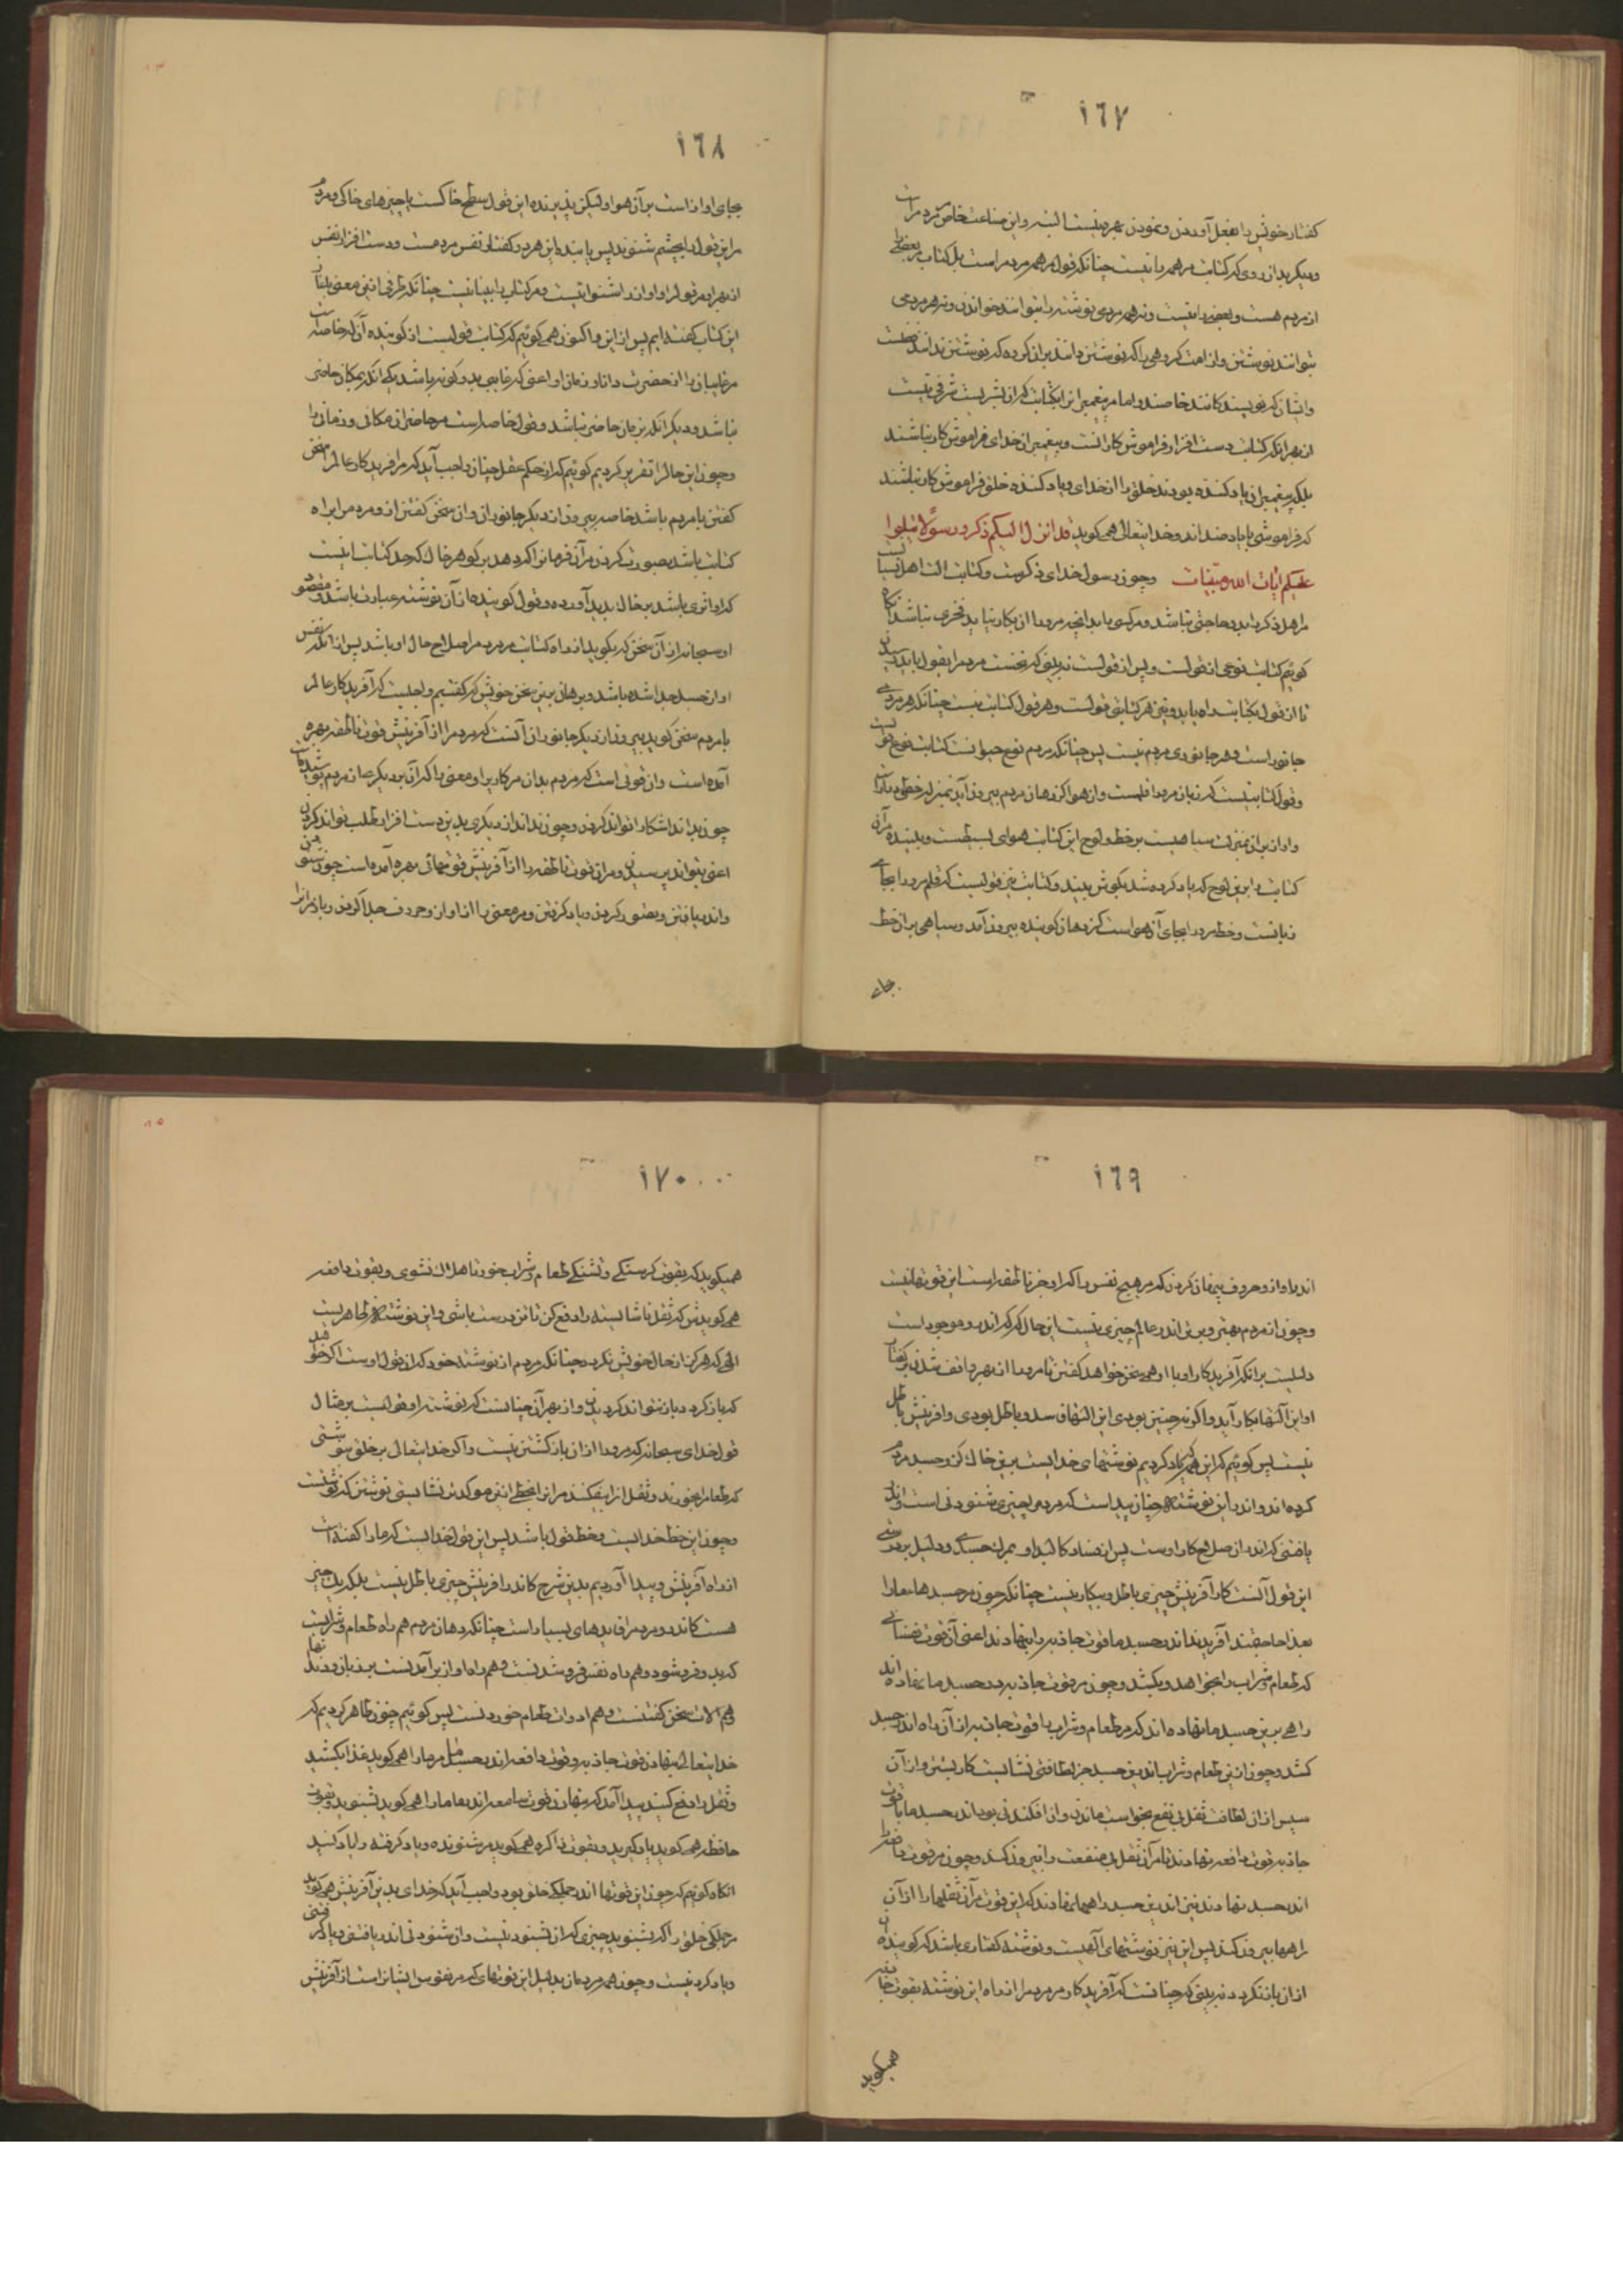 ١٦٧
گفتار خویش را بفعل آوردن و نمودن بهره نیست البته و این صناعت خاص مردم راست
و دیگر بدان روی که کتابت مر همه را نیست چنانکه قول مر همه مردم راست بل کتاب مر بعضی
از مردم هست و بعضی را نیست و نه هر مردی نوشته را بتوانند خواندن و نه هر مردمی
بتوانند نوشتن و از امت گروهی را که نوشتن دانند بر آن گروه که نوشتن ندانند فضلست
و ایشان که نویسندگانند خاصند و اما مر پیغمبر را بکتابت کزان بشریست شرفی نیست
از بهر آنکه کتابت دست افزار فراموش کارانست و پیغمبران خدای فراموش کار نباشند
بلکه پیغمبران یاد کننده بودند خلق را از خدای و یاد کننده خلق فراموش کار نباشند
که فراموشی با یاد ضد اند و خدایتعالی همی گوید قد انزل الیکم ذکرا رسولا یتلوا
علیکم ایات الله مبینات و چون رسول خدای ذکرست و کتابت التا اهل نسیا نیست
مر اهل ذکر را بدو حاجتی نباشد و مر کسی را بدانچه مرو را از بکار نیاید فخری نباشد آنگاه
گوئیم کتابت نوعی از قولست و پس از قولست نه بینی که نخست مردم را بقول باید رسیدن
تا از قول بکتابت راه یابد و یعنی هر کتابتی قولست و هر قول کتابت نیست چنانکه هر مردمی
جانور است و هر جانوری مردم نیست پس چنانکه مردم نوع حیوانست کتابت نوع قولست
و قول کتابتیست که زبان مرو را قلمست و ان هوا کز دهان مردم بیرون آید بمنزله خطی درازاست
و اواز بر آن بمنزلت سیاهیست بر خط و لوح این کتابت هوای بسیطست و بیننده مر آن
کتابت را برین لوح که یاد کرده شد بگوش بیند و کتابت نیز قولیست که قلم مرورا بجای
زبانست و خط مرورا بجای آن هواست کز دهان گوینده بیرون آمد و سیاهی بران خط
بجای
١٦٨
بجای اواز است بر آن هوا ولیکن پذیرنده این قول سطح خاکست یا چیزهای خاکی و مردم
مر این قول را بچشم شنوند پس یابنده این هر دو گفتار نفس مردمست و دست افزار نفس
از بهر این قول او اواز را شنوائیست و مر کتاب را بینائیست چنانکه طرفی ازین معنی بابتدای
این کتاب گفته ایم پیش ازین و اکنون همی گوئیم که کتابت قولیست از گوینده آن که خاصه است
مر غایبان را از حضرت دانا و زمان او اعنی که غایبی بدو گونه باشد یکی انکه بمکان حاضر
نباشد و دیگر انکه بزمان حاضر نباشد و قول خاصه است مر حاضران مکانی و زمانی را
و چون این حال را تقریر کردیم گوئیم کزان حکم عقل چنان واجب آید که مر افریدگار عالم را سخن
گفتن با مردم باشد خاصه بیرون از دیگر جانوران و ان سخن گفتن از و مردم را براه
کتابت باشد بصورت کردن مر آن فرمانرا که دهد بر گوهر خاک که حد کتابت اینست
که او اثری باشد بر خاک پدید آورده و قول گوینده از آن نوشته عبارت باشد و مقصود
او سبحانه از آن سخن که بگوید از راه کتابت مردم را صلاح حال او باشد پس از آنکه نفس
او از جسد جدا شده باشد و برهان برین سخن خویش که گفتیم واجبست که آفریدگار عالم
با مردم سخن گوید بیرون از دیگر جانوران آنست که مردم را از آفرینش قوت ناطقه بهره
آمده است و ان قوتی است که مردم بدان مر کاربرا و معنی را که آن بر دیگر همان مردم پوشیده است
چون بداند اشکارا تواند کردن و چون نداند از دیگری بدین دست افزار طلب تواند کردن
اعنی بتواند پرسیدن و مر ان قوت ناطقه را از آفرینش قوتهائی بهره آمده است چون شنودن
و اندر یافتن و تصور کردن و یاد گرفتن و مر معنی را از اواز و حروف جدا کردن و باز مر انرا
١٦٩
اندر اواز و حروف پنهان کردن که مر هیچ نفس را که او جز ناطقه است این قوتها نیست
و چون از مردم بهتر و برتر اندر عالم چیزی نیست این حال که اندر و موجود است
دلیلست بر انکه آفریدگار او با او همی سخن خواهد گفتن تا مرورا از بهر واقف شدن بر گفتار
او این آلتها بکار آید و اگر نه چنین بودی این التها فاسد و باطل بودی و افرینش باطل
نیست پس گوئیم که این همه که یاد کردیم نوشتهای خدایست برین خاک کزو جسد مردم
کرده اند و اندر این نوشته چنان پیداست که مردم را چیزی شنودنی است و اندر
یافتنی که اندر ان صلاح کار اوست پس از فساد کالبد او بمرگ جسدی و دلیل بر درستی
این قول آنست که از آفرینش چیزی باطل و بیکار نیست چنانکه چون مر جسدها مارا
بغذا حاجتمند آفریدند اندر جسد ما قوت جاذبه را بنهادند اعنی آن قوت نفسانی
که طعام و شراب را بخواهد و بکشد و چون مر قوت جاذبه در جسد ما نهاده اند
راهی برین جسد ما نهاده اند که مر طعام و شراب را قوت جاذبه از آن راه اندر جسد
کشد و چون ازین طعام و شراب اندرین جسد جز لطافتی نشایست کار بستن و از آن
سپس از ان لطافت ثقلی بی نفع بخواست ماندن و از افکندنی بود اندر جسد ما با قوت
جاذبه قوت دافعه بنهادند تا مر آن ثقل بی منفعت را بیرون کند و چون مر قوت دافعه را
اندر جسد نهادند نیز اندرین جسد راهها نهادند که این قوت مر آن ثقلها را از آن
راهها بیرون کند پس این نیز نوشتهای آلهیست و نوشته گفتاری باشد که گوینده آن
از ان باز نگردد نه بینی که چنانست که آفریدگار مردم را از راه این نوشته بقوت جاذبه
همیگوید
١٧٠
همیگوید که بقوت گرسنگی و تشنگی طعام و شراب خور تا هلاک نشوی و بقوت دافعه
همی گویدش که ثقل ناشایسته را دفع کن تا تن درست باشی و این نوشته ظاهریست
الهی که هرگز از حال خویش نگردد چنانکه مردم از نوشته خود که ان قول اوست اگر خواهد
که باز گردد باز نتواند گردیدن و از بهر آن چنانست که نوشته او قولیست بر مثال
قول خدای سبحانه که مرورا از ان باز گشتن نیست و اگر خدایتعالی بر خلق بنوشتی
که طعام را بخورند و ثقل از ان بیفکنند مر انرا بخطی ازین موکدتر نشایستی نوشتن که نوشتست
و چون این خط خدایست و خط قول باشد پس این قول خدایست که مارا گفته است
از راه آفرینش و پیدا آوردیم بدین شرح کاندر افرینش چیزی باطل نیست بلکه یک چیز
هست کاندر و مردم را فایدهای بسیار است چنانکه دهان مردم هم راه طعام و شرابست
که بدو فرو شود و هم راه نفس فرو شدنست و هم راه اواز بر آمدنست و بدندانها
و هم آلات سخن گفتنست و هم ادوات طعام خوردنست پس گوئیم چون ظاهر کردیم که
خدایتعالی بنهادن قوت جاذبه و قوت دافعه اندر جسد ما مر مارا همی گوید غذا بکشید
و ثقل را دفع کنید پیدا آمد که بنهادن قوت سامعه اندر ما مارا همی گوید بشنوید و بقوت
حافظه همی گوید یاد گیرید و بقوت ذاکره همی گوید مر شنوده و یاد گرفته را یاد کنید
انگاه گوئیم که چون این قوتها اندر جملگی خلق بود واجب آید که خدای بدین آفرینش همی گوید
مر جملگی خلق را که بشنوید چیزی که ان شنودنیست و ان شنودنی اندر یافتنی و یاد گرفتنی
و یاد کردنیست و چون همه مردمان بدلیل این قوتهای که مر نفوس ایشانراست از آفرینش